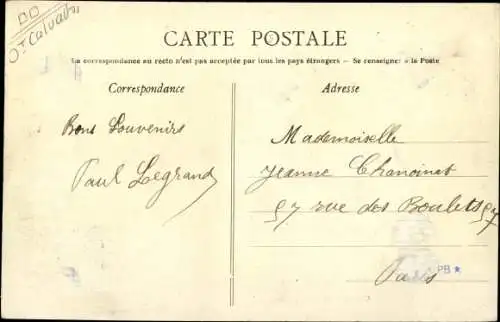 Dt Calvados
CARTE POSTALE
La correspondance au recto n'est pas acceptée par tous les pays étrangers — Se renseigner à la Poste
Correspondance
Bons Souvenirs
Paul Legrand
Adresse
Mademoiselle
Jeanne Chanoinat
97 rue des Boulets 97
Paris
PB ★